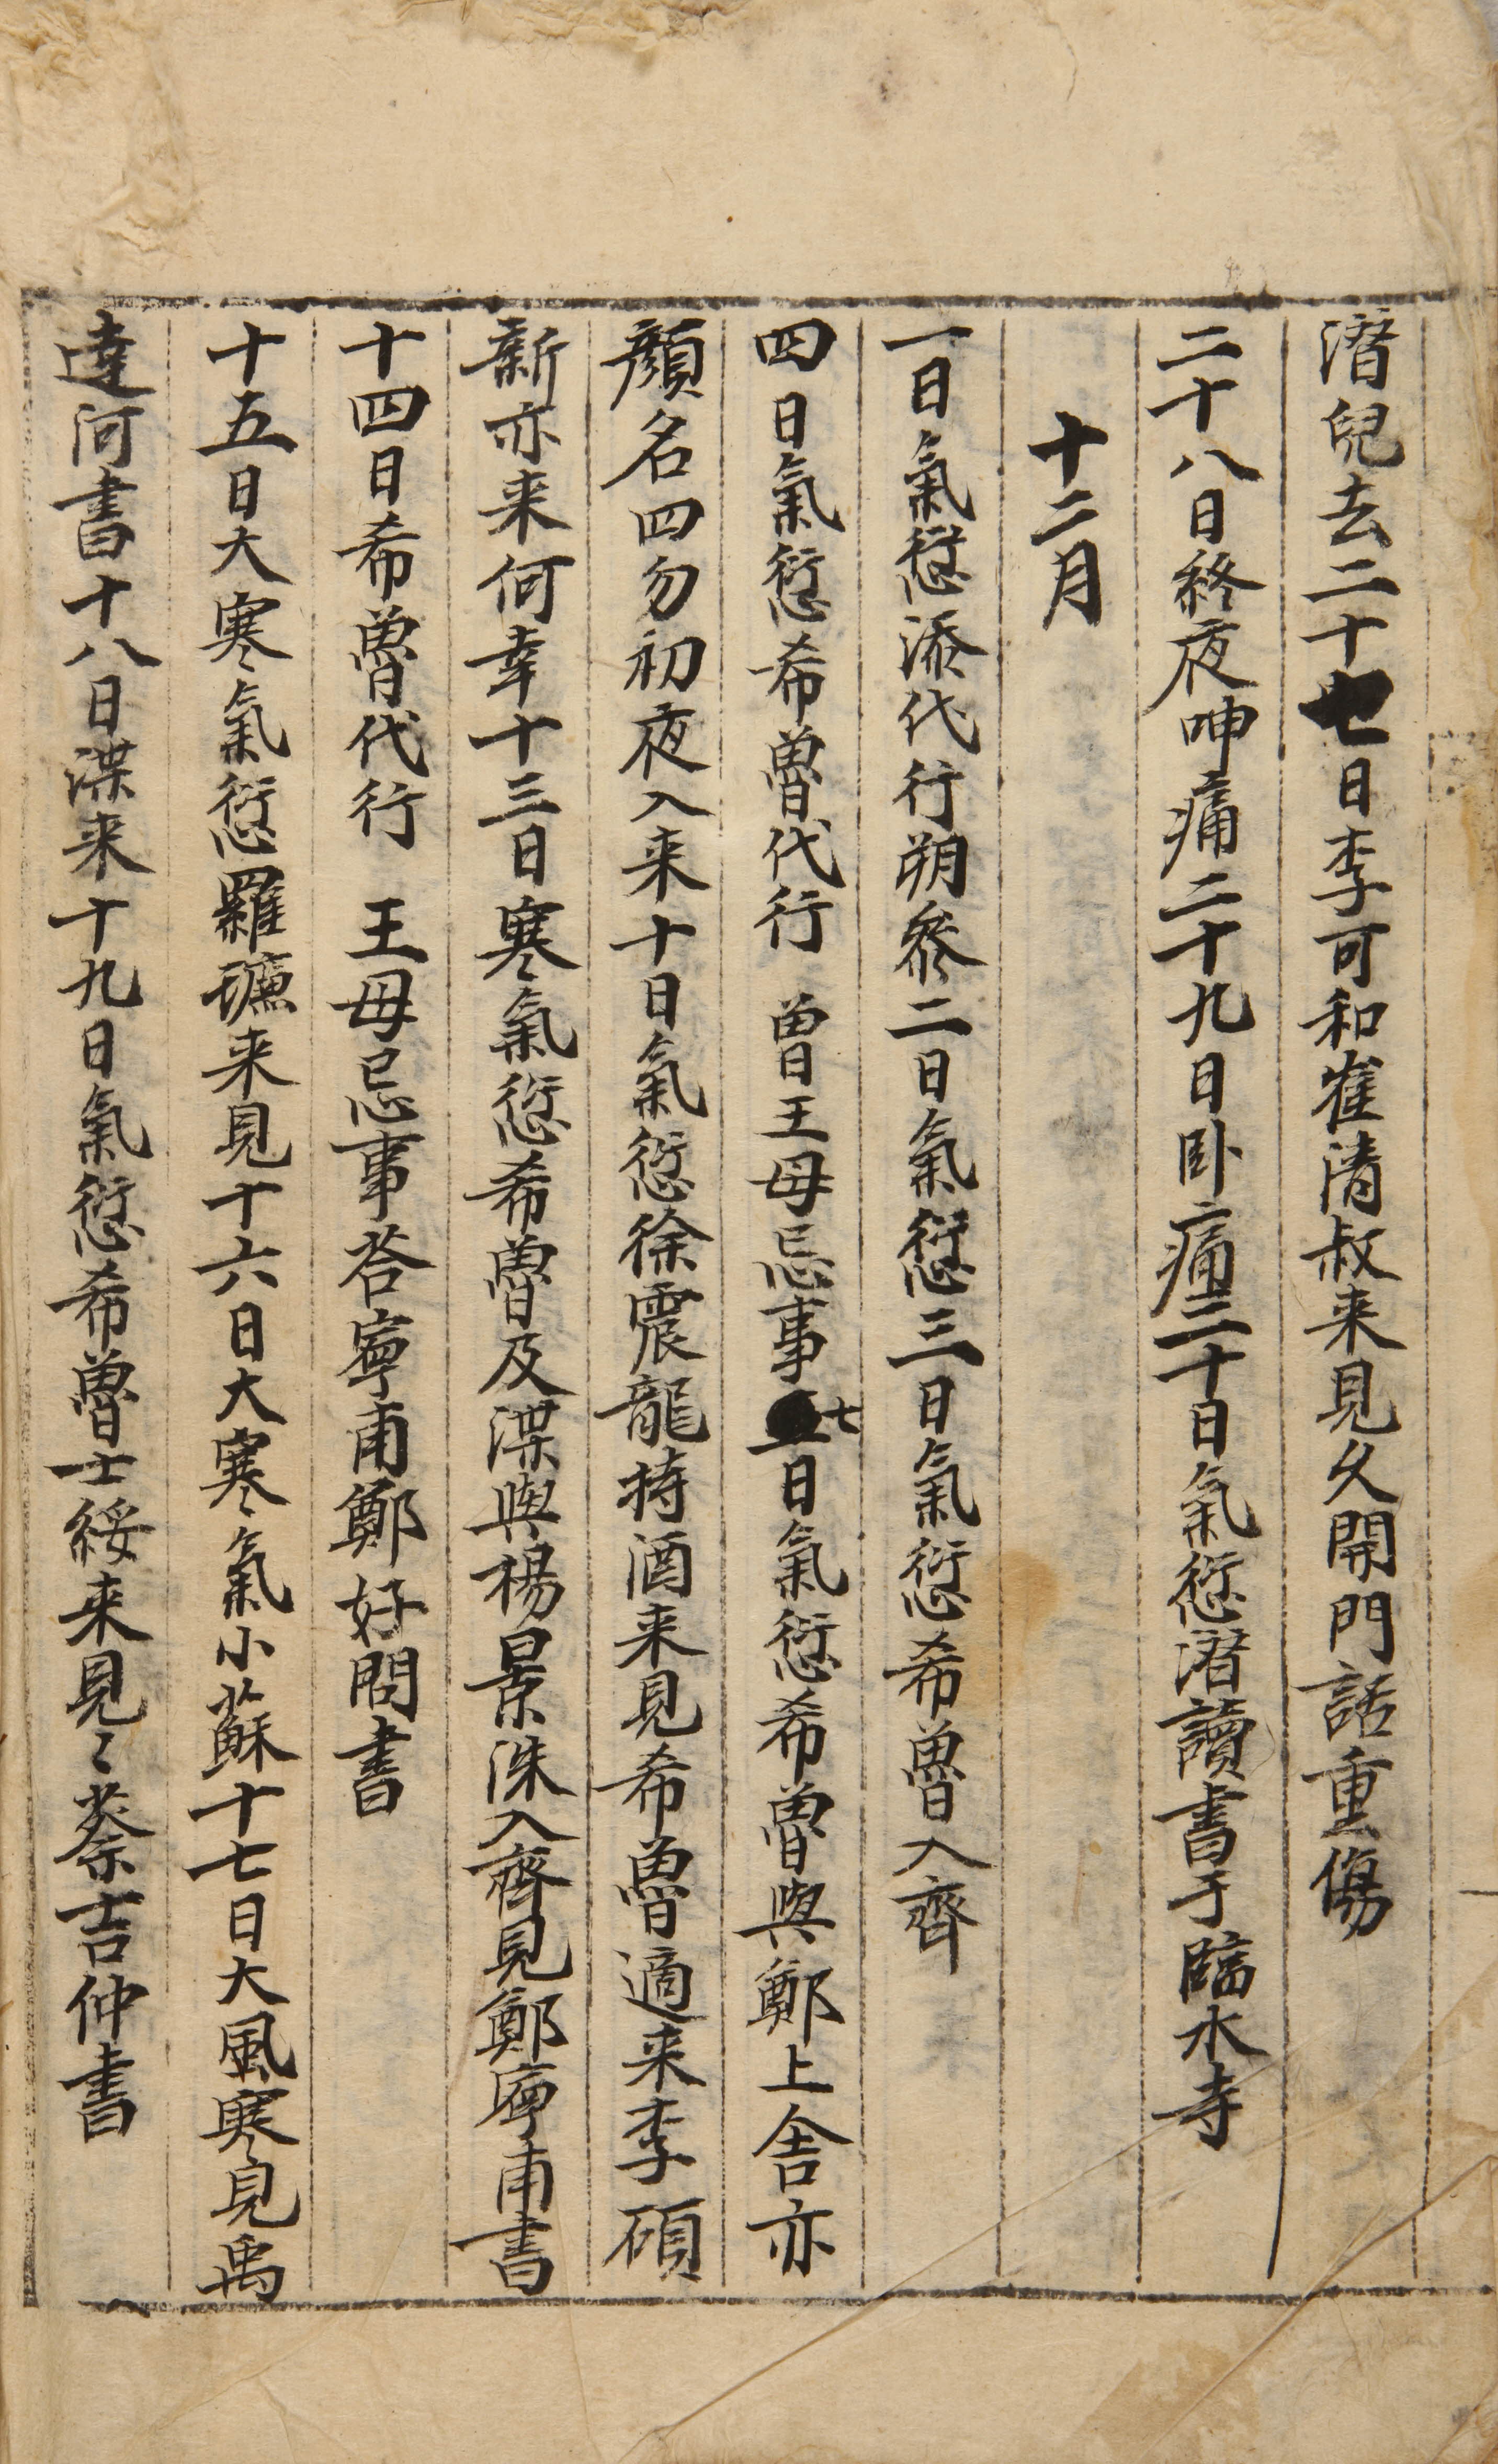 潛兒去二十七日李可和崔清叔来見久開門話重傷
二十八日終夜呻痛二十九日卧痛三十日氣愆潛讀書于臨水寺
十二月
一日氣愆添代行朔參二日氣愆三日氣愆希魯入齊
四日氣愆希魯代行 曽王母忌事七日氣愆希魯與鄭上舍亦
顔名四勿初夜入来十日氣愆徐震龍持酒来見希魯適来李碩
新亦来何幸十三日寒氣愆希魯及渫與楊景洙入齊見鄭寧甫書
十四日希魯代行 王母忌事答寧甫鄭好問書
十五日大寒氣愆羅瓋来見十六日大寒氣小蘇十七日大風寒見禹
達河書十八日渫来十九日氣愆希魯士綏来見〻蔡吉仲書